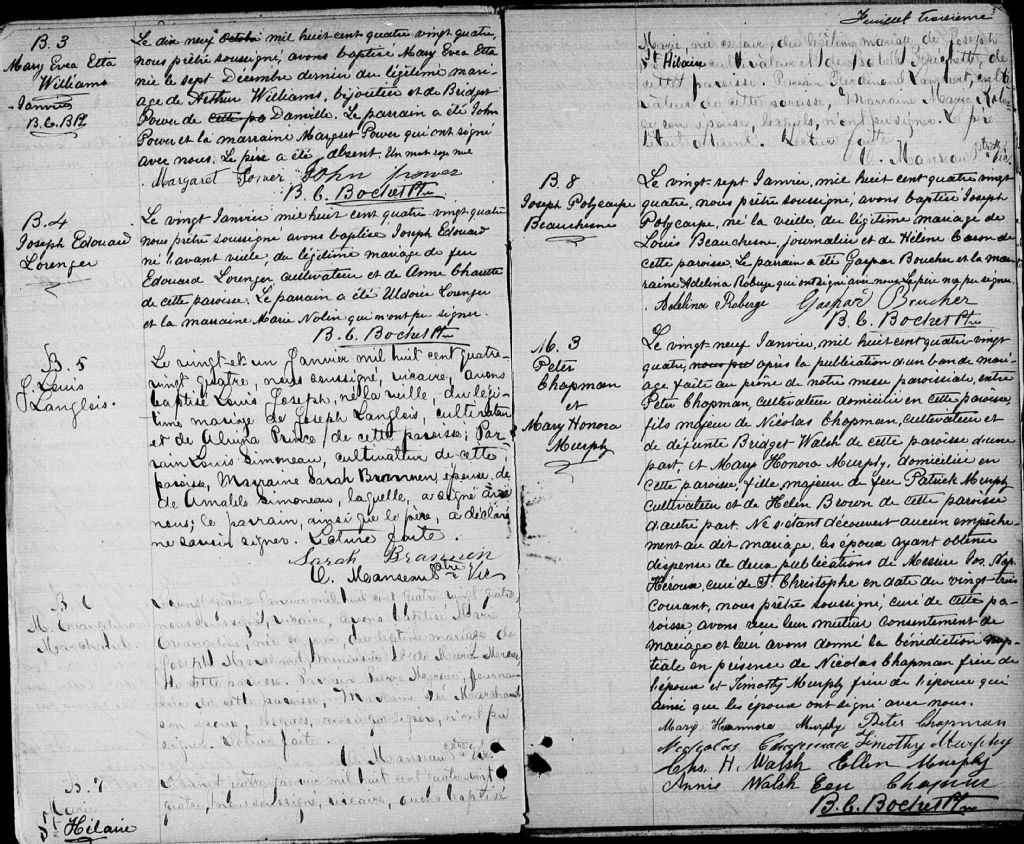 B. 3
Mary Evea Etta
Williams
Janvier
B.C.B Pt
Le dix neuf Octobre mil huit cent quatre vingt quatre,
nous prêtre soussigné, avons baptisé Mary Evea Etta
née le sept Décembre dernier du légitime mari-
age de Arthur Williams, bijoutier et de Bridget
Power de cette pa Danville. Le parrain a été John
Power et la marraine Margret Power qui ont signé
avec nous. Le père a été absent. Un mot rayé nul
Margaret Power John Power
B. C. Bochet Ptre
B. 4
Joseph Edouard
Lorenger
Le vingt Janvier mil huit cent quatre vingt quatre
nous prêtre soussigné avons baptisé Joseph Edouard
né l'avant veille, du légitime mariage de feu
Edouard Lorenger cultivateur et de Anne Charette
de cette paroisse. Le parrain a été Uldoric Lorenger
et la marraine Marie Nolin qui n'ont pu signer.
B. C. Bochet Ptre
B. 5
J. Louis
Langlois.
Le vingt et un Janvier mil huit cent quatre-
vingt quatre, nous soussigné, vicaire, avons
baptisé Louis Joseph, né la veille, du légi-
time mariage de Joseph Langlois, cultivateur
et de Alvina Prince, de cette paroisse; Par-
rain Louis Simoneau, cultivateur de cette
paroisse, Marraine Sarah Brannen, épouse de
de Amable Simoneau, laquelle, a signé avec
nous; le parrain, ainsi que le père, a déclaré
ne savoir signer. Lecture faite.
Sarah Brannen
C. Manseau Ptre Vic
B. 6
M. Evangeline
Marchand.
Janvier mil huit cent quatre vingt quatre,
nous soussigné, vicaire, avons baptisé Marie
Evangeline, née ce jour, du légitime mariage de
Joseph Marchand, menuisier et de Marie Mercier,
de cette paroisse. Parrain
de cette paroisse, Marraine Marchand
son épouse, lesquels, ainsi que le père, n'ont pu
signer. Lecture faite.
C. Manseau Ptre Vic.
B. 7
Marie
St Hilaire
quatre Janvier mil huit cent quatre vingt
quatre, nous soussigné, vicaire, avons baptisé
Feuillet troisième
Marie, née ce jour, du légitime mariage de Joseph
St Hilaire cultivateur et de
cette paroisse. Parrain Ferdinand Lambert, culti-
vateur de cette paroisse, Marraine Marie
son épouse, lesquels, n'ont pu signer. Le père
était absent. Lecture faite
C. Manseau Ptre Vic.
B. 8
Joseph Polycarpe
Beauchesne
Le vingt-sept Janvier, mil huit cent quatre vingt
quatre, nous prêtre soussigné, avons baptisé Joseph
Polycarpe, né la veille du légitime mariage de
Louis Beauchesne, journalier et de Hélène Caron de
cette paroisse. Le parrain a été Gaspar Boucher et la mar-
raine Adelina Roberge qui ont signé avec nous. Le père n'a pu signer.
Adelina Roberge Gaspar Boucher
B. C. Bochet Ptre
M. 3
Peter
Chapman
et
Mary Honora
Murphy
Le vingt neuf Janvier, mil huit cent quatre-vingt
quatre, nous prê après la publication d'un ban de mari-
age faite au prône de notre messe paroissiale, entre
Peter Chapman, cultivateur domicilié en cette paroisse,
fils majeur de Nicolas Chapman, cultivateur et
de défunte Bridget Walsh de cette paroisse d'une
part, et Mary Honora Murphy, domiciliée en
cette paroisse, fille majeure de feu Patrick Murphy
cultivateur et de Helen Brown de cette paroisse
d'autre part. Ne s'étant découvert aucun empêche-
ment au dit mariage, les époux ayant obtenu
dispense de deux publications de Messire Jos. Nap.
Heroux, curé de St. Christophe en date du vingt-trois
courant, nous prêtre soussigné, curé de cette pa-
roisse, avons reçu leur mutuel consentement de
mariage et leur avons donné la bénédiction nup-
tiale en présence de Nicolas Chapman frère de
l'époux et Timothy Murphy frère de l'épouse qui
ainsi que les époux ont signé avec nous.
Mary Hannora Murphy Peter Chapman
Nicholas Chapman Timothy Murphy
Chs. H. Walsh Ellen Murphy
Annie Walsh Chapman
B. C. Bochet Ptre